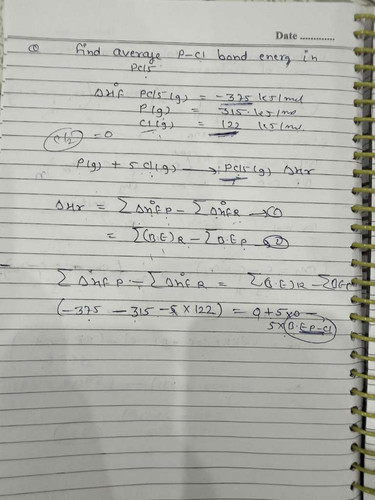 Date .............
Q Find average P-Cl bond energy in
PCl5
ΔH°f PCl5(g) = -375 kJ/mol
P(g) = 315 kJ/mol
Cl(g) = 122 kJ/mol
Cl2 = 0
P(g) + 5Cl(g) → PCl5(g) ΔHr
ΔHr = ΣΔH°f P - ΣΔH°f R →①
= Σ(B.E)R - ΣB.E P →②
ΣΔH°f P - ΣΔH°f R = Σ(B.E)R - ΣBEP
(-375 - 315 - 5 × 122) = 0 + 5×0 -
5×B.E P-Cl